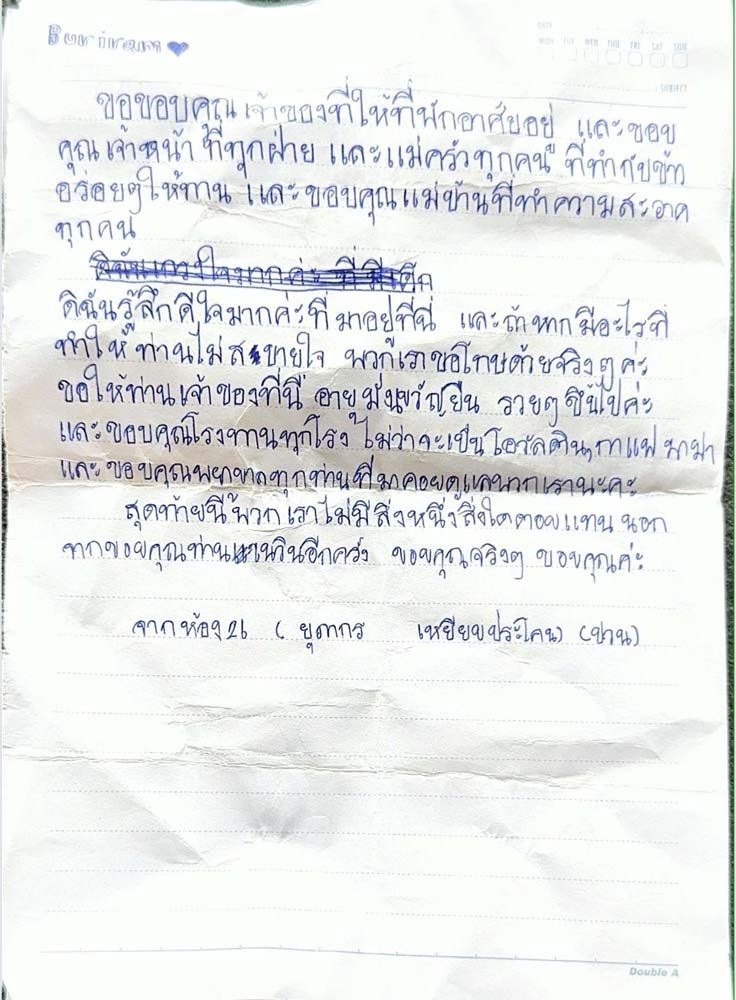 DATE
MON TUE WED THU FRI SAT SUN
SUBJECT
ขอขอบคุณ เจ้าของที่ให้ที่พักอาศัยอยู่ และขอบ
คุณ เจ้าหน้า ที่ทุกฝ่าย และแม่ครัวทุกคน ที่ทำกับข้าว
อร่อยๆ ให้ทาน และ ขอบคุณแม่บ้านที่ทำความสะอาด
ทุกคน
ดิฉันรู้สึกดีใจมากค่ะที่มาอยู่ที่นี่ และถ้าหากมีอะไรที่
ทำให้ ท่านไม่สบายใจ พวกเราขอโทษด้วยจริงๆ ค่ะ
ขอให้ท่านเจ้าของที่นี่ อายุมั่นขวัญยืน รวยๆ ขึ้นไปค่ะ
และขอบคุณโรงทานทุกโรง ไม่ว่าจะเป็นโอวัลติน, กาแฟ มาม่า
และขอบคุณพยาบาลทุกท่านที่มาคอยดูแลพวกเรานะคะ
สุดท้ายนี้ พวกเราไม่มีสิ่งหนึ่งสิ่งใดตอบแทน นอก
จากขอบคุณท่านเนวินอีกครั้ง ขอบคุณจริงๆ ขอบคุณค่ะ
จากห้อง 26 ( เหยียบประโคน) (ป่วน)
Double A